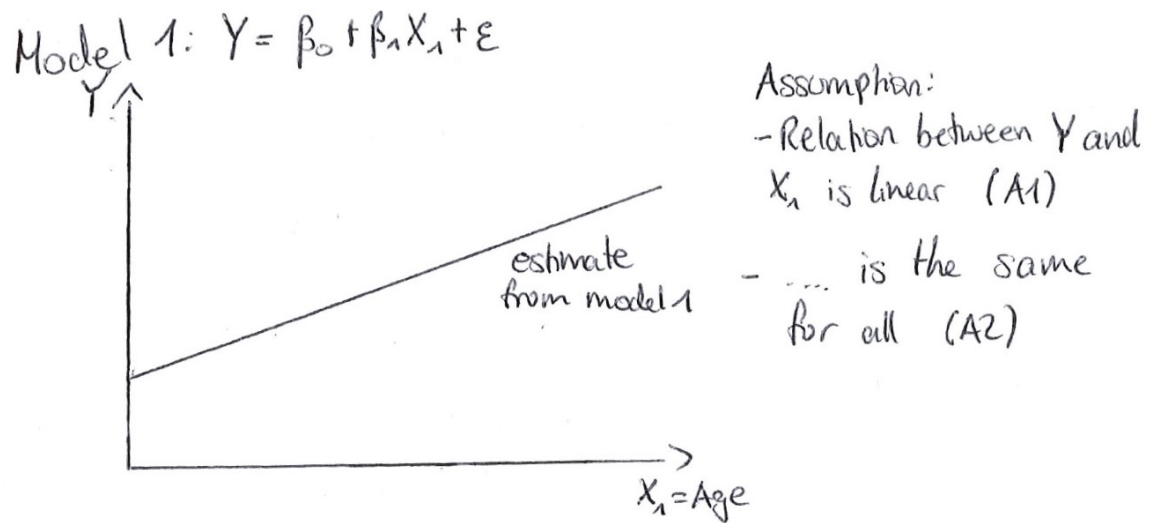 Model 1: Y = β₀ + β₁X₁ + ε
Y
Assumption:
- Relation between Y and
X₁ is linear (A1)
- .... is the same
for all (A2)
estimate
from model 1
X₁ = Age